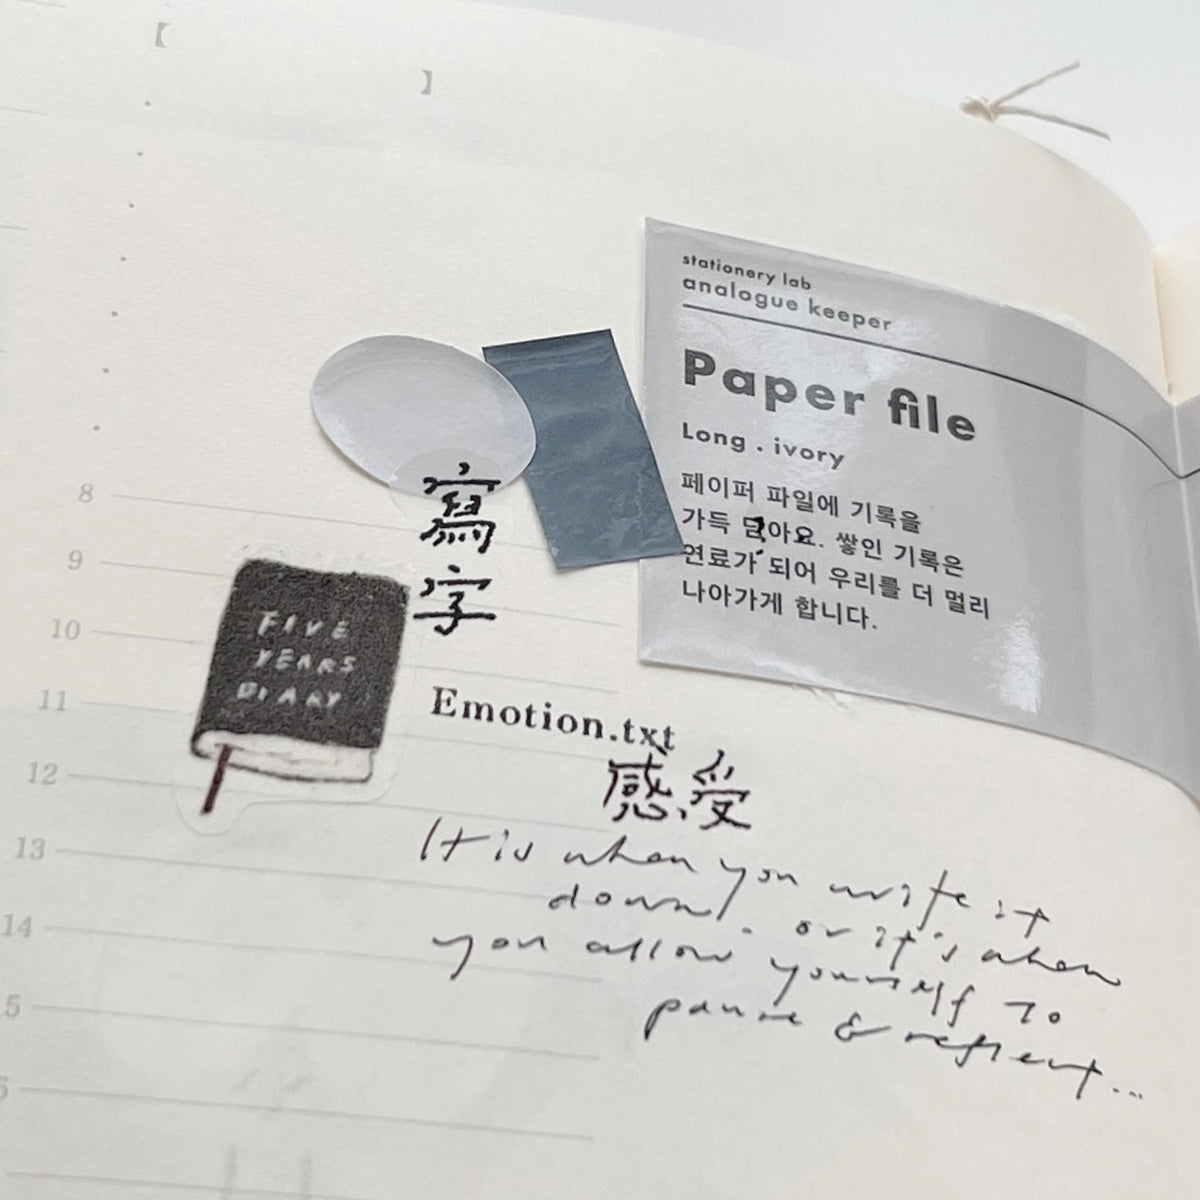 【
】
stationery lab
analogue keeper
Paper file
Long . ivory
페이퍼 파일에 기록을
가득 담아요. 쌓인 기록은
연료가 되어 우리를 더 멀리
나아가게 합니다.
寫
字
8
9
10
11
12
13
14
5
6
FIVE
YEARS
DIARY
Emotion.txt
感受
It is when you write it
down. or it's when
you allow yourself to
pause & reflect...